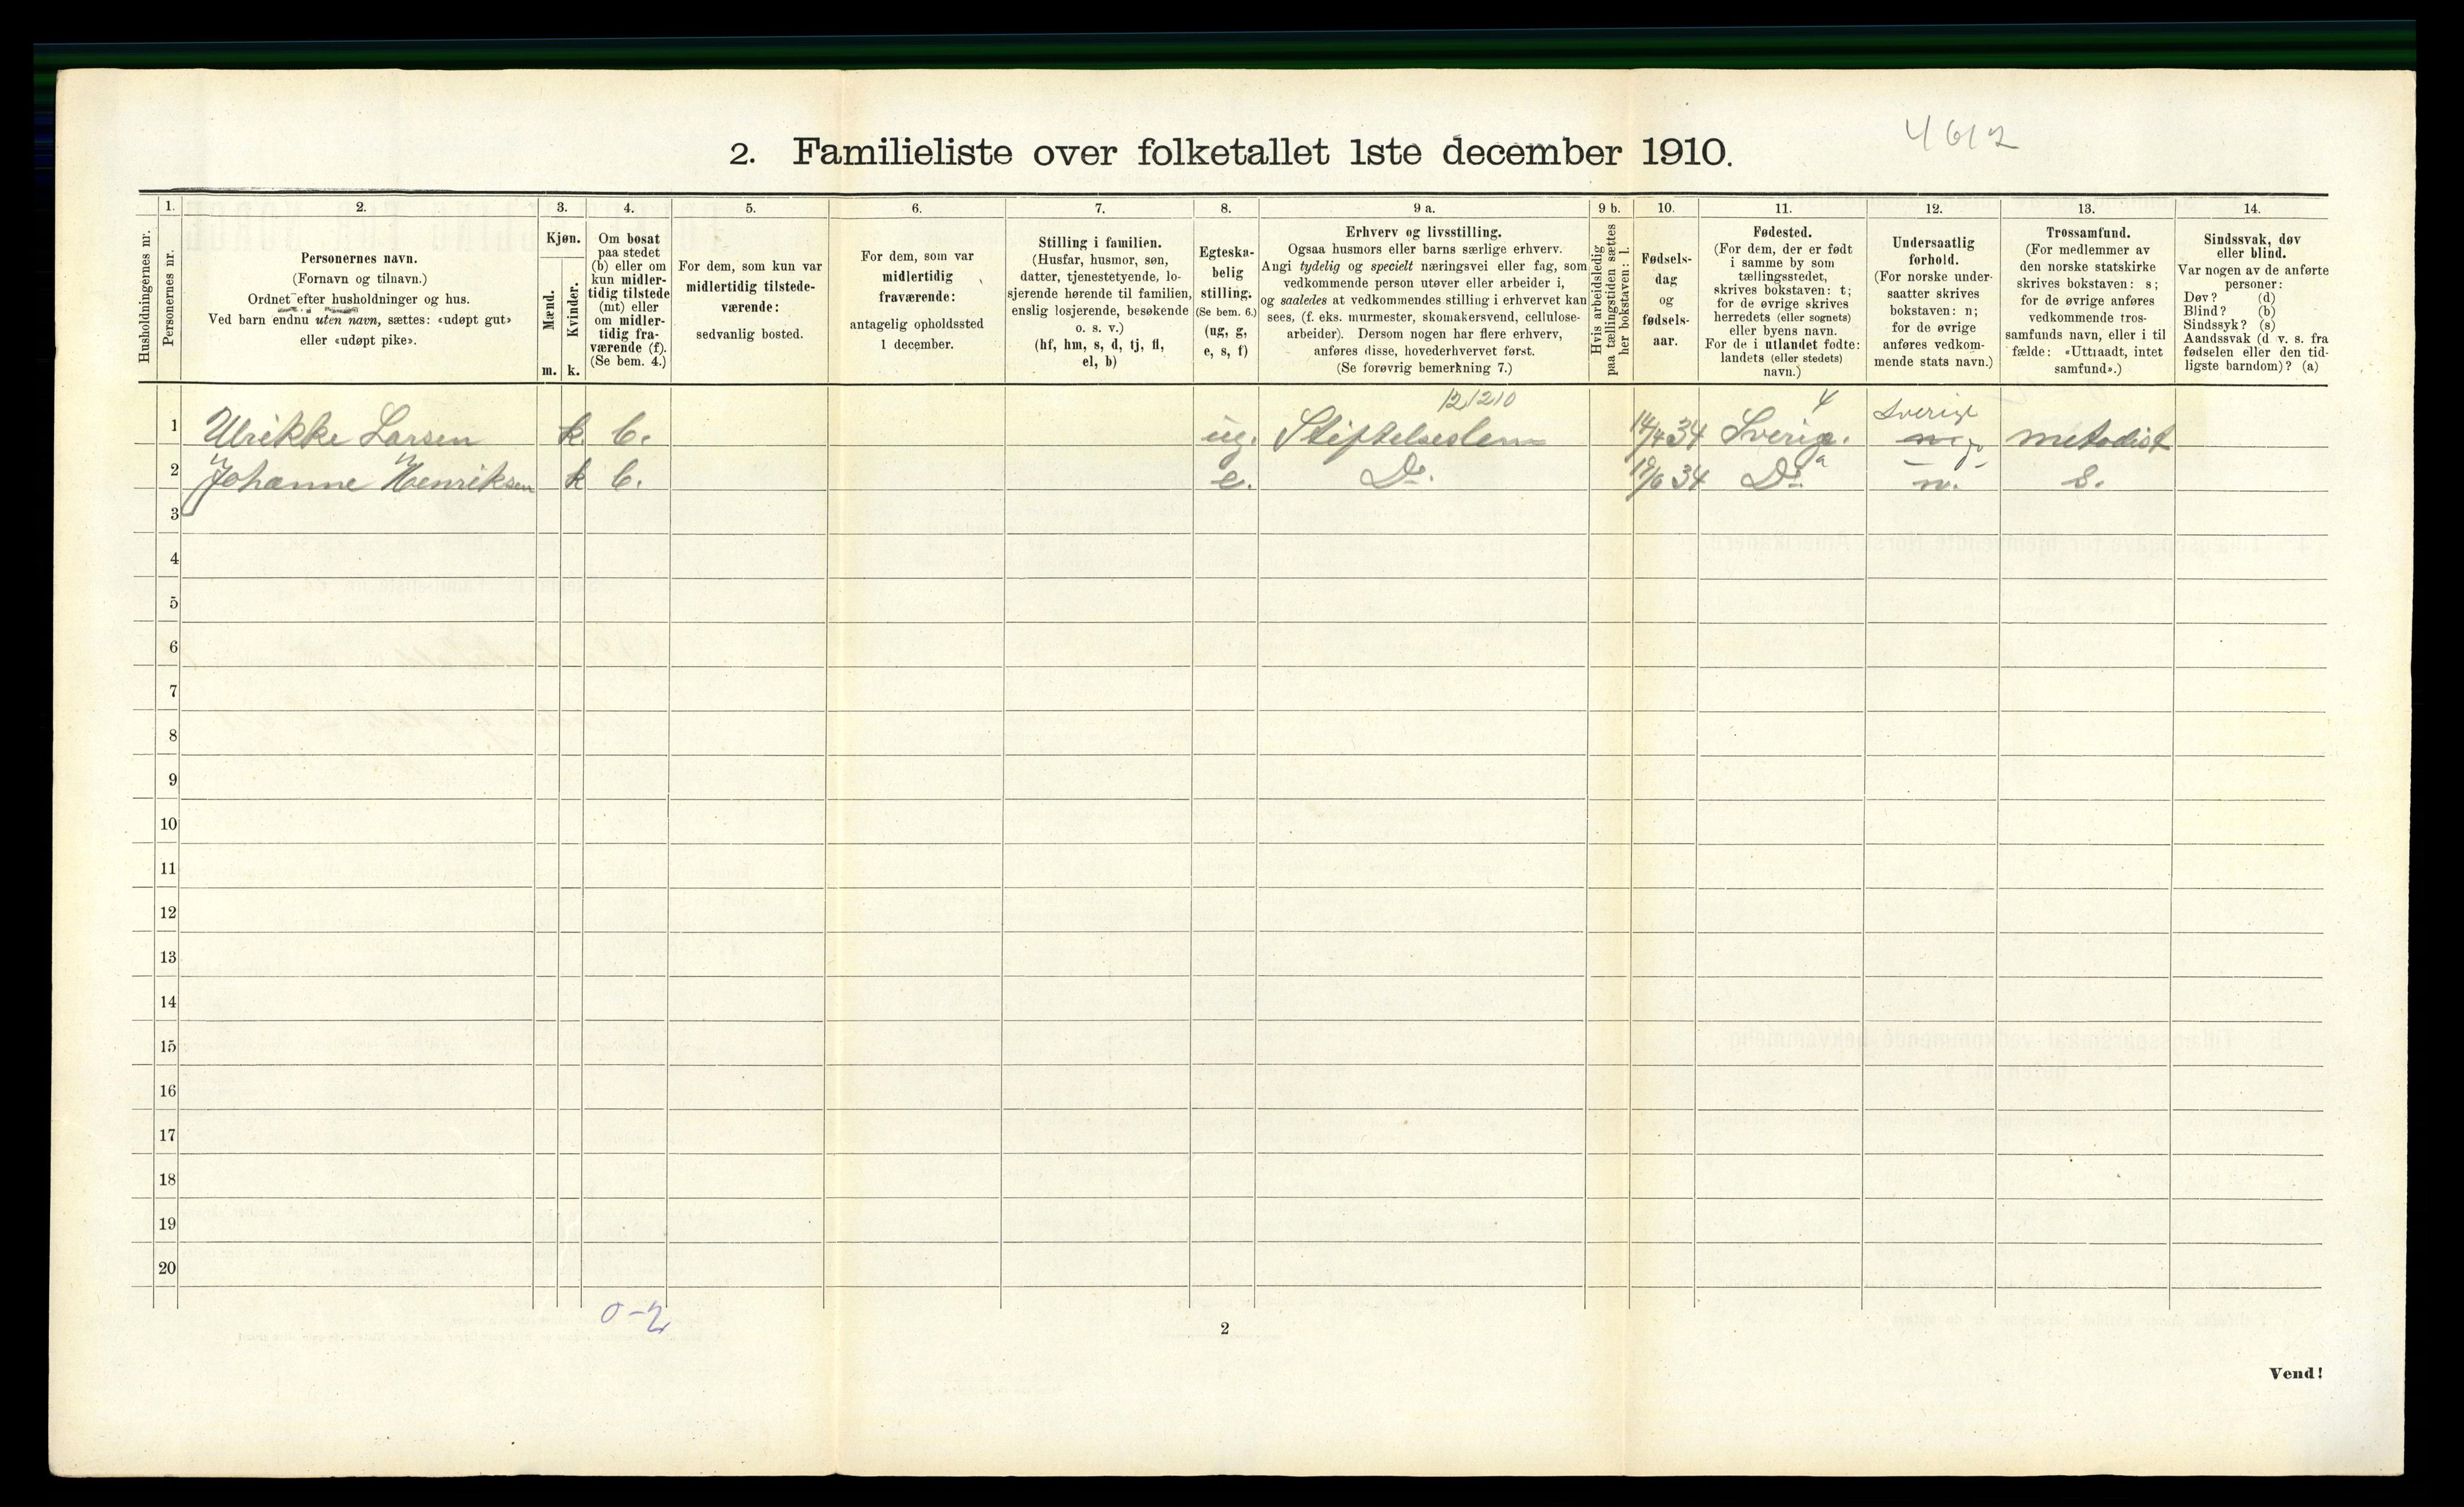 4612
2. Familieliste over folketallet 1ste december 1910.
Husholdningernes nr.
1.
Personernes nr.
2.
Personernes navn.
(Fornavn og tilnavn.)
Ordnet efter husholdninger og hus.
Ved barn endnu uten navn, sættes: «udøpt gut»
eller «udøpt pike».
3.
Kjøn.
Mænd.
Kvinder.
m. k.
4.
Om bosat
paa stedet
(b) eller om
kun midler-
tidig tilstede
(mt) eller
om midler-
tidig fra-
værende (f).
(Se bem. 4.)
5.
For dem, som kun var
midlertidig tilstede-
værende:
sedvanlig bosted.
6.
For dem, som var
midlertidig
fraværende:
antagelig opholdssted
1 december.
7.
Stilling i familien.
(Husfar, husmor, søn,
datter, tjenestetyende, lo-
sjerende hørende til familien,
enslig losjerende, besøkende
o. s. v.)
(hf, hm, s, d, tj, fl,
el, b)
8.
Egteska-
belig
stilling.
(Se bem. 6.)
(ug, g,
e, s, f)
9 a.
Erhverv og livsstilling.
Ogsaa husmors eller barns særlige erhverv.
Angi tydelig og specielt næringsvei eller fag, som
vedkommende person utøver eller arbeider i,
og saaledes at vedkommendes stilling i erhvervet kan
sees, (f. eks. murmester, skomakersvend, cellulose-
arbeider). Dersom nogen har flere erhverv,
anføres disse, hovederhvervet først.
(Se forøvrig bemerkning 7.)
9 b.
Hvis arbeidsledig
paa tællingstiden sættes
her bokstaven: l.
10.
Fødsels-
dag
og
fødsels-
aar.
11.
Fødested.
(For dem, der er født
i samme by som
tællingsstedet,
skrives bokstaven: t;
for de øvrige skrives
herredets (eller sognets)
eller byens navn.
For de i utlandet fødte:
landets (eller stedets)
navn.)
12.
Undersaatlig
forhold.
(For norske under-
saatter skrives
bokstaven: n;
for de øvrige
anføres vedkom-
mende stats navn.)
13.
Trossamfund.
(For medlemmer av
den norske statskirke
skrives bokstaven: s;
for de øvrige anføres
vedkommende tros-
samfunds navn, eller i til
fælde: «Uttraadt, intet
samfund».)
14.
Sindssvak, døv
eller blind.
Var nogen av de anførte
personer:
Døv? (d)
Blind? (b)
Sindssyk? (s)
Aandssvak (d v. s. fra
fødselen eller den tid-
ligste barndom)? (a)
121210 4 Sverige
1 Ulrikke Larsen k b. ug. Stiftelseslem 14/4 34 Sverig. metodist
2 Johanne Henriksen k b. e. Do. 19/6 34 Do. n. s.
3
4
5
6
7
8
9
10
11
12
13
14
15
16
17
18
19
20
0-2
2
Vend!